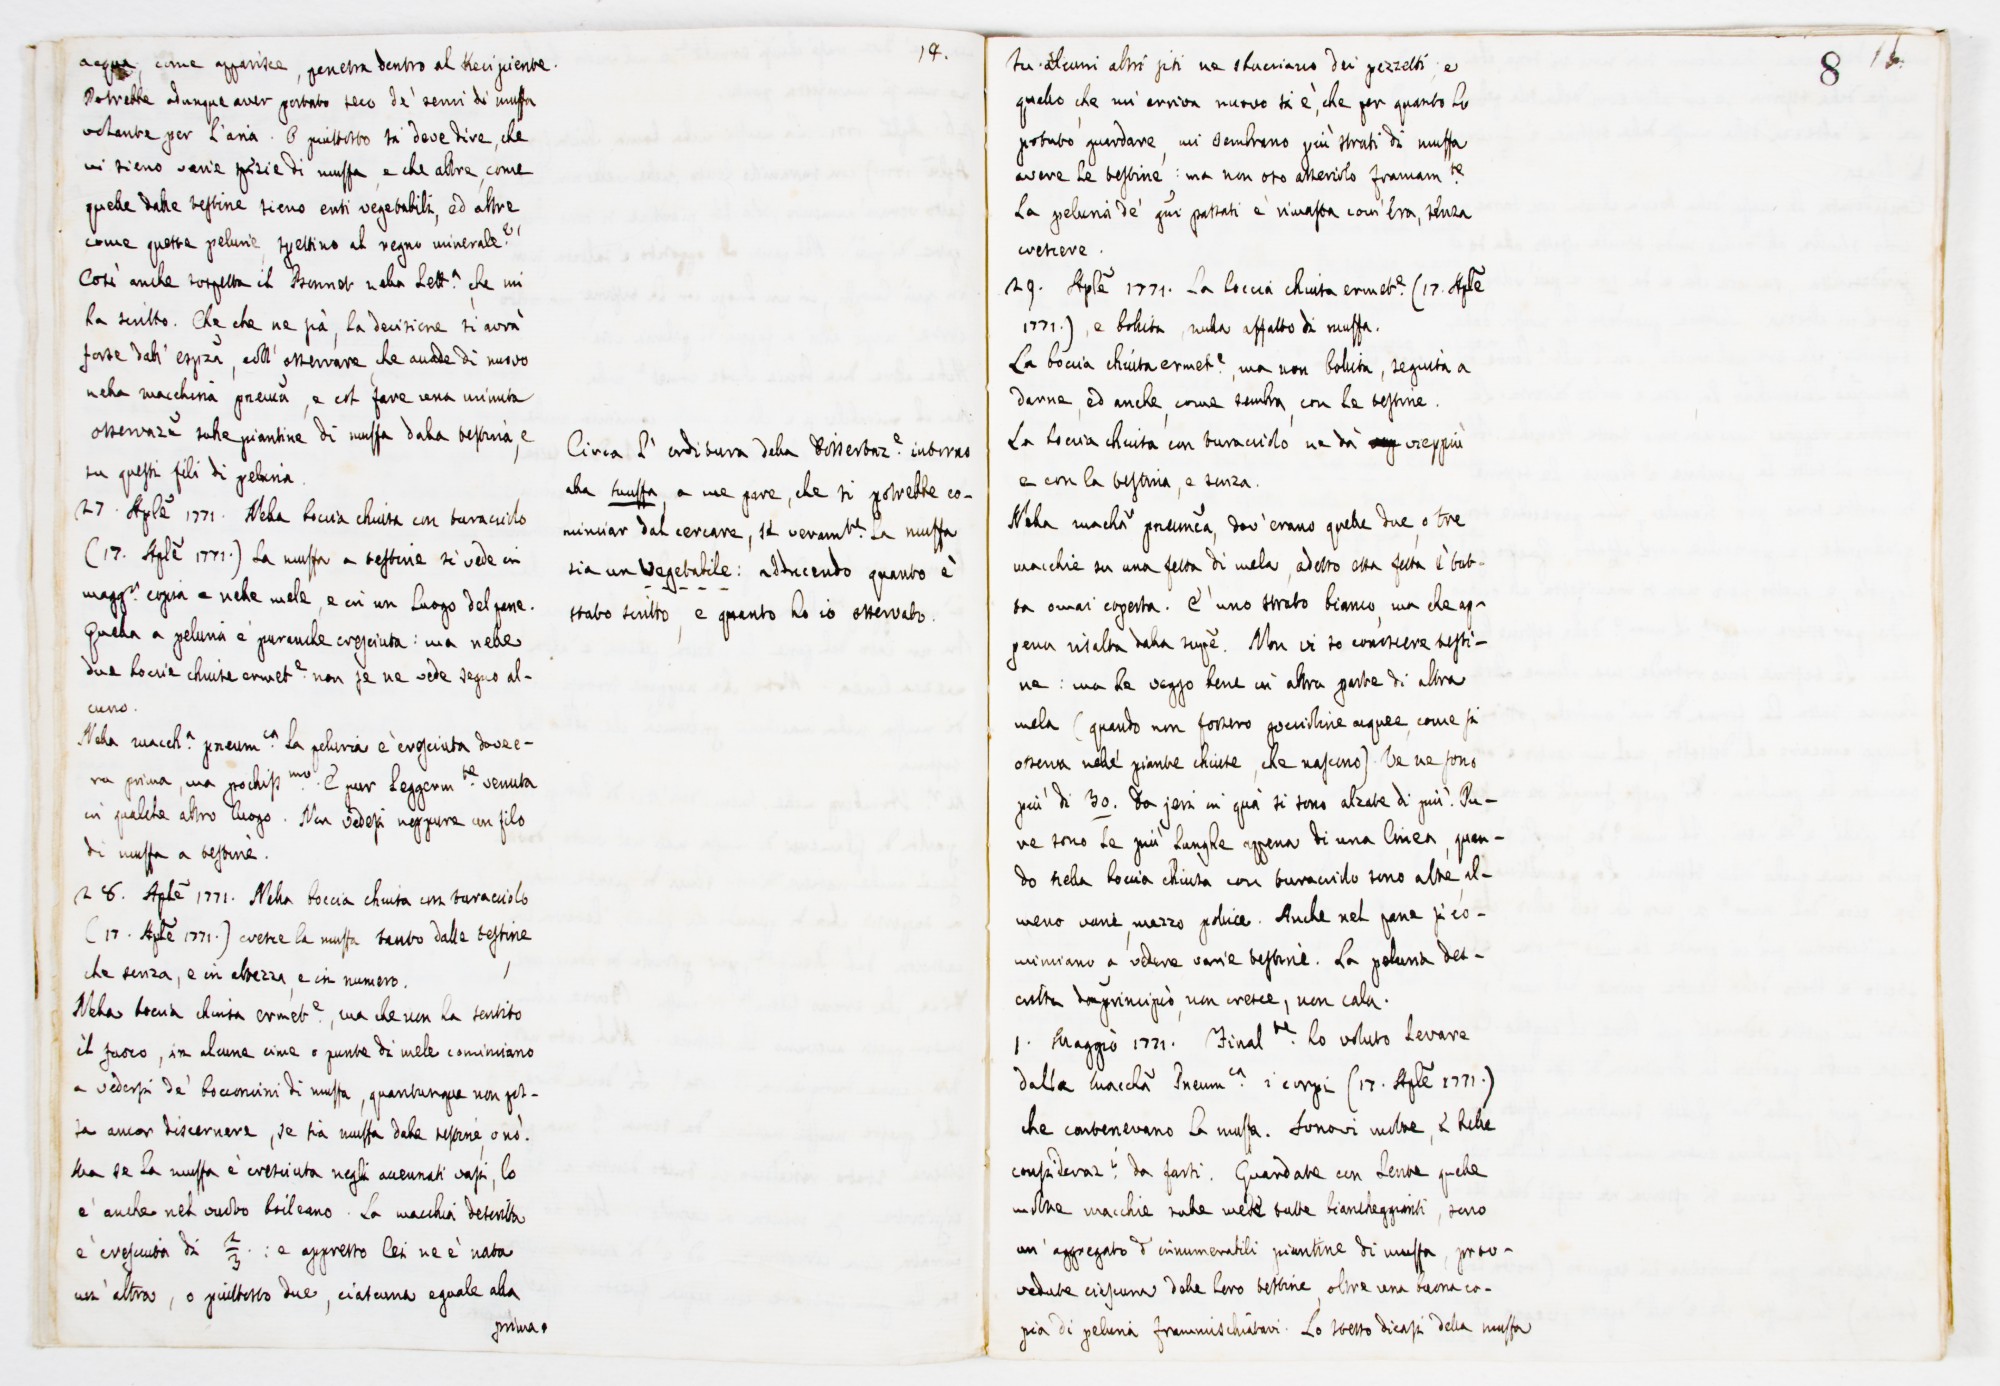 14.
acqua, come apparisce, penetra dentro al Recipiente.
Potrebbe adunque aver portato seco de' semi di muffa
volante per l'aria. O piuttosto si deve dire, che
vi sieno varie spezie di muffa, e che altre, come
quelle dalle testine sieno enti vegetabili, ed altre
come queste pelurie, spettino al regno minerale?
Così anche sospetta il Bonnet nella Lett.ª che mi
ha scritto. Che che ne sia, la decisione si avrà
forse dall' espza, coll' osservare, che accade di nuovo
nella macchina pneuca, e col fare una minuta
osservaze sulle piantine di muffa dalla testina, e
su questi fili di peluria.
27. Aple 1771. Nella boccia chiusa con turacciolo
(17. Aple 1771.) la muffa a testine si vede in
magg.r copia e nelle mele, e in un luogo del pane.
Quella a peluria è pur anche cresciuta: ma nelle
due boccie chiuse ermet.e non se ne vede segno al-
cuno.
Nella macch.ª pneum.ca la peluria è cresciuta dov'e-
ra prima, ma pochiss.mo È pur leggerm.te venuta
in qualche altro luogo. Non vedesi neppure un filo
di muffa a testine.
28. Aple 1771. Nella boccia chiusa con turacciolo
(17. Aple 1771.) cresce la muffa tanto dalle testine
che senza, e in altezza, e in numero.
Nella boccia chiusa ermet.e, ma che non ha sentito
il fuoco, in alcune cime o punte di mele cominciano
a vedersi de' bocconcini di muffa, quantunque non pos-
sa ancor discernere, se sia muffa dalle testine, o nò.
Ma se la muffa è cresciuta negli accennati vasi, lo
è anche nel vuoto boileano. La macchia descritta
è cresciuta di 2/3. : e appresso lei ne è nata
un' altra, o piuttosto due, ciascuna eguale alla
prima.
Circa l' orditura della Dissertaz.e intorno
alla muffa, a me pare, che si potrebbe co-
minciar dal cercare, se veram.te la muffa
sia un Vegetabile: adducendo quanto è
stato scritto, e quanto ho io osservato.
8
In alcuni altri siti ne stuccano dei pezzetti, e
quello, che mi arriva nuovo si è, che per quanto ho
potuto guardare, mi sembrano più strati di muffa
avere le testine: ma non oso asserirlo francam.te
La peluria de' gni passati è rimasta com'era, senza
crescere.
29. Aple 1771. La boccia chiusa ermet.e (17. Aple
1771.), e bollita, nulla affatto di muffa.
La boccia chiusa ermet.e, ma non bollita, seguita a
darne, ed anche, come sembra, con le testine.
La boccia chiusa con turacciolo ne dà vieppiù
e con la testina, e senza.
Nella macha pneumca, dov'erano quelle due, o tre
macchie su una fetta di mela, adesso essa fetta è tut-
ta omai coperta. È uno strato bianco, ma che ap-
pena risalta dalla supe. Non vi so conoscere testi-
ne: ma le veggo bene in altra parte di altra
mela (quando non fossero goccioline acquee, come si
osserva nelle piante chiuse, che nascono). Ve ne sono
più di 30. Da jeri in quà si sono alzate di più. Pu-
re sono le più lunghe appena di una linea, quan-
do nella boccia chiusa con turacciolo sono alte, al-
meno varie, mezzo pollice. Anche nel pane si co-
minciano a vedere varie testine. La peluria des-
critta da principio, non cresce, non cala.
1. Maggio 1771. Final.te ho voluto levare
dalla Maccha Pneum.ca i corpi (17. Aple 1771.)
che contenevano la muffa. Sonovi molte, e belle
consideraz.i da farsi. Guardate con lente quelle
molte macchie sulle mele tutte biancheggianti, sono
un' aggregato d' innumerabili piantine di muffa, prov-
vedute ciascuna delle loro testine, oltre una buona co-
pia di peluria frammischiatavi. Lo stesso dicasi della muffa